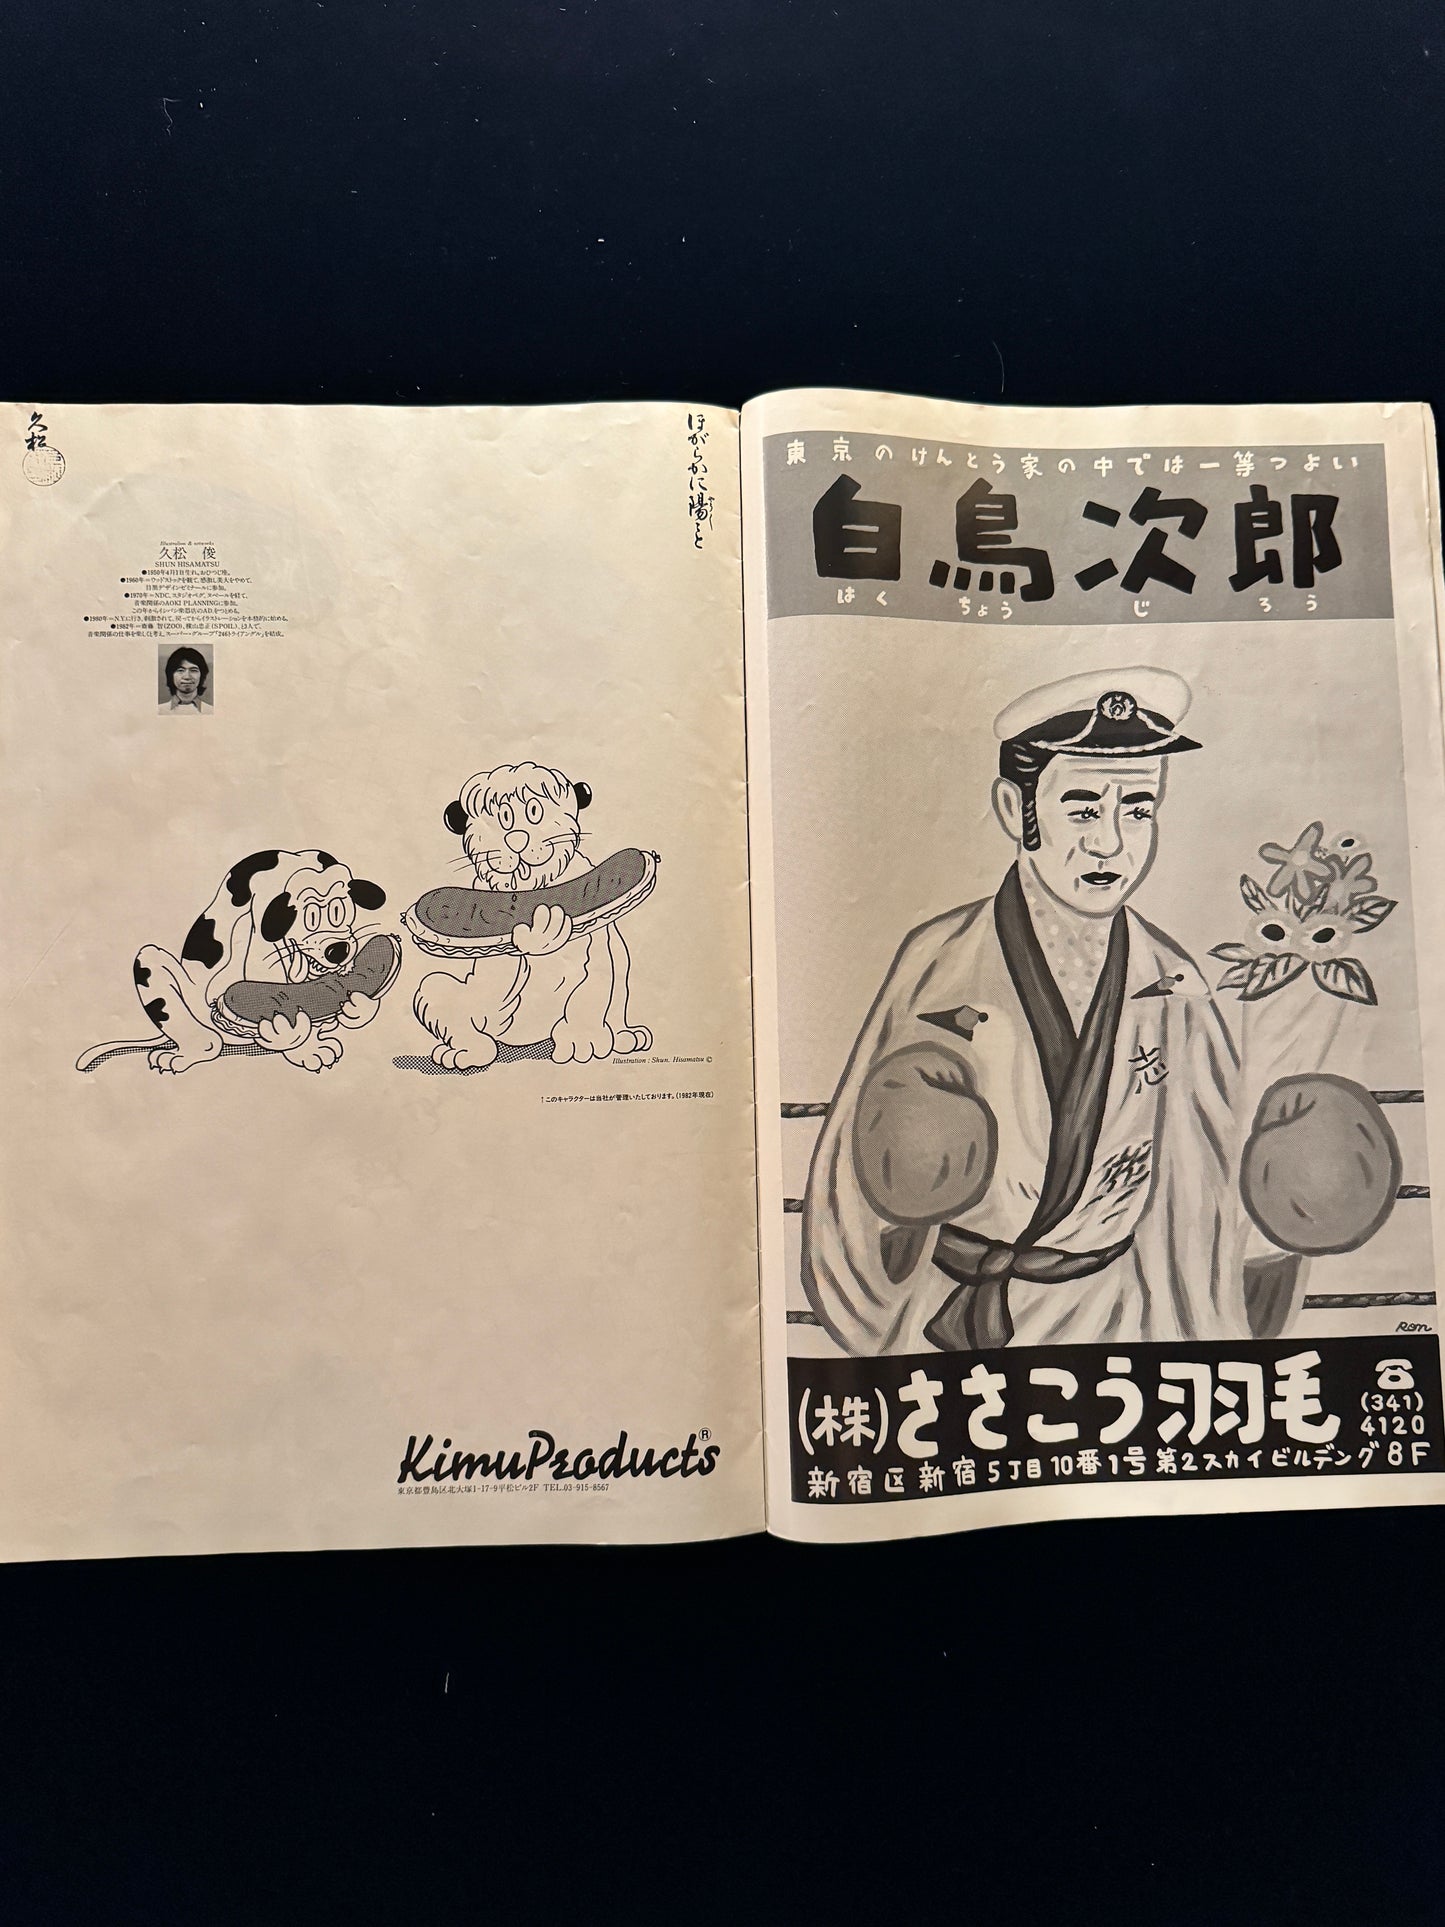 久松
ほがらかに陽々と
Illustration & artworks
久松 俊
SHUN HISAMATSU
●1950年4月1日生れ。おひつじ座。
●1960年=ウッドストックを観て、感激し美大をやめて、
目黒デザインゼミナールに参加。
●1970年=NDC、スタジオペグ、スペールを経て、
音楽関係のAOKI PLANNINGに参加。
この年からイシバシ楽器店のAD.をつとめる。
●1980年=N.Y.に行き、刺激されて、戻ってからイラストレーションを本格的に始める。
●1982年=斎藤 智(ZOO)、横山忠正(SPOIL)、と3人で、
音楽関係の仕事を楽しくと考え、スーパー・グループ「246トライアングル」を結成。
Illustration : Shun. Hisamatsu ©
↑このキャラクターは当社が管理いたしております。(1982年現在)
KimuProducts®
東京都豊島区北大塚1-17-9平松ビル2F TEL.03-915-8567
東京のけんとう家の中では一等つよい
白鳥次郎
はくちょうじろう
志
Ron
(株)ささこう羽毛
(341)
4120
新宿区新宿5丁目10番1号第2スカイビルデング8F